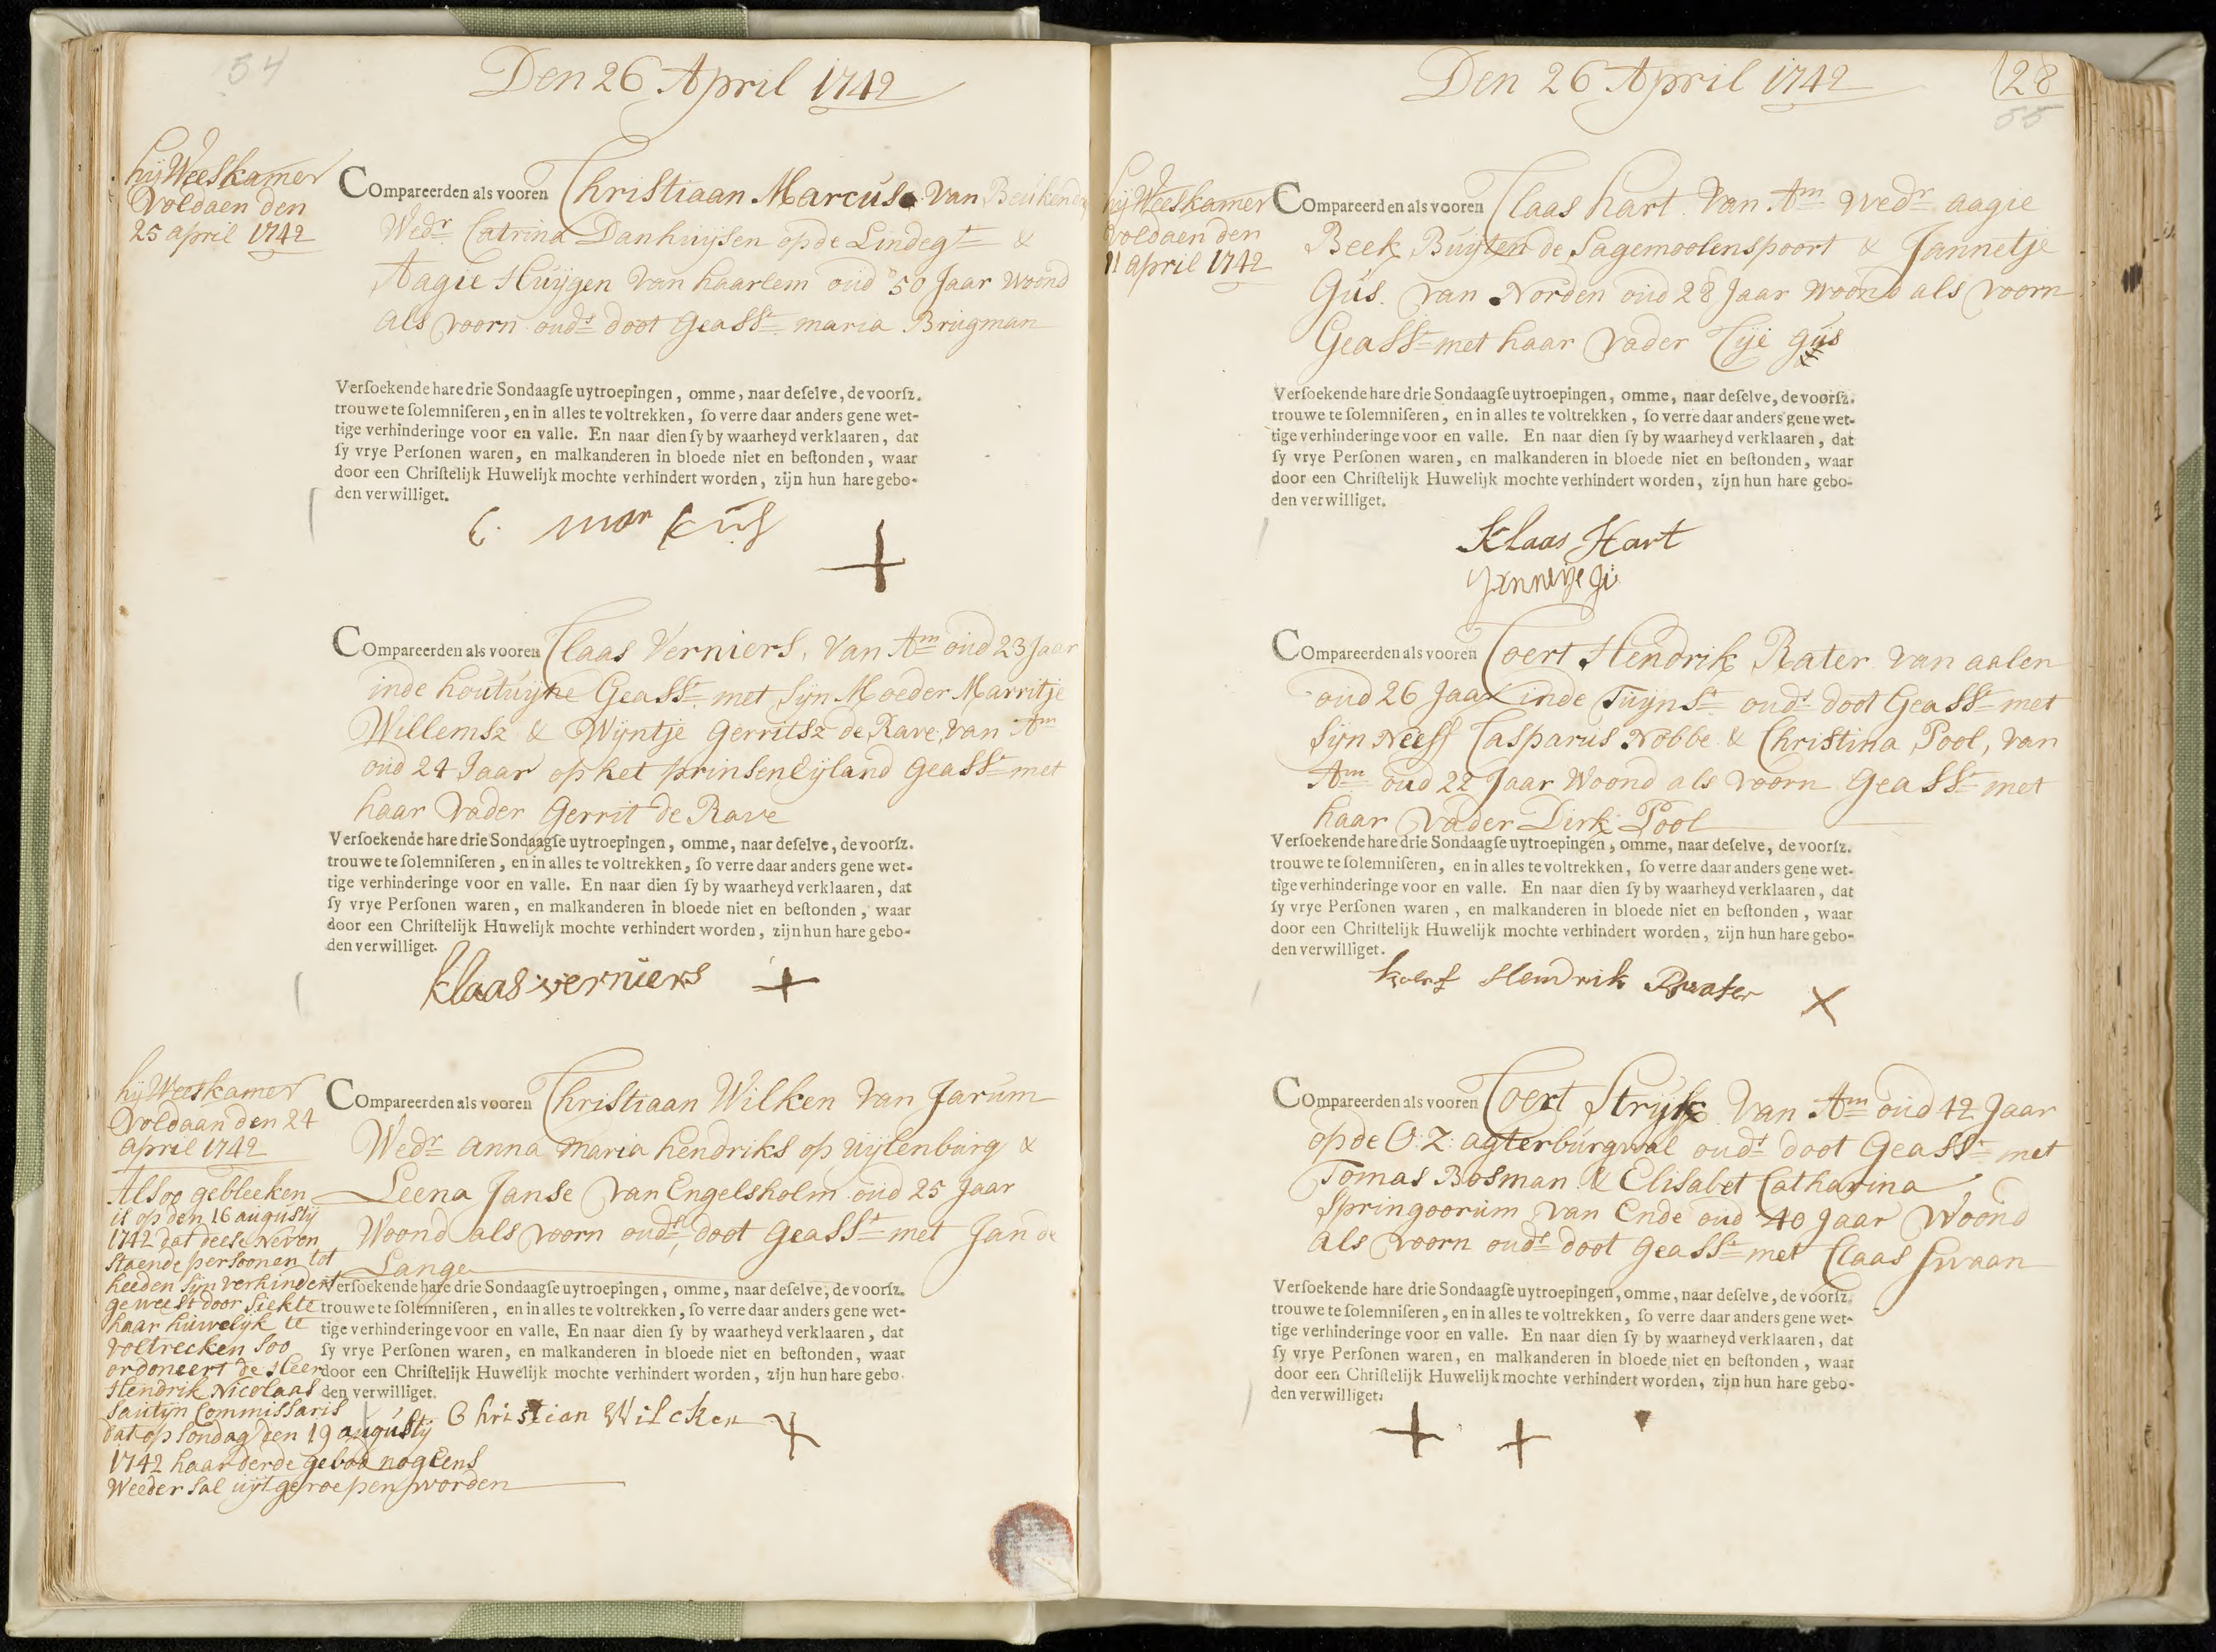 54
Den 26 April 1742
hij Weeskamer
Voldaen den
25 april 1742
Compareerden als vooren Christiaan Marcus Van Beukende
Wedr Catrina Danhuijsen op de Lindegt &
Aagie Huijgen Van haarlem oud 50 Jaar woond
als voorn ouds doot Geasst maria Brugman
Versoekende hare drie Sondaagse uytroepingen, omme, naar deselve, de voorsz.
trouwe te solemniseren, en in alles te voltrekken, so verre daar anders gene wet-
tige verhinderinge voor en valle. En naar dien sy by waarheyd verklaaren, dat
sy vrye Personen waren, en malkanderen in bloede niet en bestonden, waar
door een Christelijk Huwelijk mochte verhindert worden, zijn hun hare gebo-
den verwilliget.
C. mar kus
Compareerden als vooren Claas Verniers, Van Am oud 23 Jaar
inde houtuijne Geasst met Sijn Moeder Marritje
Willemsz & Wijntje Gerritsz de Rave, van Am
oud 24 Jaar op het prinsen Eijland Geasst met
haar Vader Gerrit de Rave
Versoekende hare drie Sondaagse uytroepingen, omme, naar deselve, de voorsz.
trouwe te solemniseren, en in alles te voltrekken, so verre daar anders gene wet-
tige verhinderinge voor en valle. En naar dien sy by waarheyd verklaaren, dat
sy vrye Personen waren, en malkanderen in bloede niet en bestonden, waar
door een Christelijk Huwelijk mochte verhindert worden, zijn hun hare gebo-
den verwilliget.
klaas verniers
hij Weeskamer
Voldaan den 24
april 1742
Compareerden als vooren Christiaan Wilken Van Jarum
Wedr anna maria hendriks op uijlenburg &
Leena Janse Van Engelsholm oud 25 Jaar
Woond als voorn ouds doot Geasst met Jan de
Lange
Alsoo gebleeken
is op den 16 augusty
1742 dat deese Neven
Staende persoonen tot
heeden Sijn verhindert
geweest door Siekte
haar huwelijk te
voltrecken Soo
ordoneert de Heer
Hendrik Nicolaas
Sautijn Commissaris
dat op Sondag den 19 augusty
1742 haar derde gebod nog Eens
Weeder Sal uijtgeroepen worden
Versoekende hare drie Sondaagse uytroepingen, omme, naar deselve, de voorsz.
trouwe te solemniseren, en in alles te voltrekken, so verre daar anders gene wet-
tige verhinderinge voor en valle. En naar dien sy by waarheyd verklaaren, dat
sy vrye Personen waren, en malkanderen in bloede niet en bestonden, waar
door een Christelijk Huwelijk mochte verhindert worden, zijn hun hare gebo-
den verwilliget.
Christian Wilcken
Den 26 April 1742
28
55
hij Weeskamer
Voldaen den
11 april 1742
Compareerden als vooren Claas hart Van Am Wedr aagie
Beek Buijten de Sagemoolenspoort & Jannetje
Gus. van Norden oud 28 Jaar woond als voorn
Geasst met haar Vader Tije gus
Versoekende hare drie Sondaagse uytroepingen, omme, naar deselve, de voorsz.
trouwe te solemniseren, en in alles te voltrekken, so verre daar anders gene wet-
tige verhinderinge voor en valle. En naar dien sy by waarheyd verklaaren, dat
sy vrye Personen waren, en malkanderen in bloede niet en bestonden, waar
door een Christelijk Huwelijk mochte verhindert worden, zijn hun hare gebo-
den verwilliget.
Klaas Hart
Compareerden als vooren Coert Hendrik Rater van aalen
oud 26 Jaar inde Tuijnst ouds doot Geasst met
Sijn Neeff Casparus Nobbe & Christina Pool, van
Am oud 22 Jaar Woond als voorn Geasst met
haar Vader Dirk Pool
Versoekende hare drie Sondaagse uytroepingen, omme, naar deselve, de voorsz.
trouwe te solemniseren, en in alles te voltrekken, so verre daar anders gene wet-
tige verhinderinge voor en valle. En naar dien sy by waarheyd verklaaren, dat
sy vrye Personen waren, en malkanderen in bloede niet en bestonden, waar
door een Christelijk Huwelijk mochte verhindert worden, zijn hun hare gebo-
den verwilliget.
Hendrik
Compareerden als vooren Coert Strijk Van Am oud 42 Jaar
op de O:Z: agterburgwal ouds doot Geasst met
Tomas Bosman & Elisabet Catharina
Springoorum van Ende oud 40 Jaar Woond
als voorn ouds doot Geasst met Claas Swaan
Versoekende hare drie Sondaagse uytroepingen, omme, naar deselve, de voorsz.
trouwe te solemniseren, en in alles te voltrekken, so verre daar anders gene wet-
tige verhinderinge voor en valle. En naar dien sy by waarheyd verklaaren, dat
sy vrye Personen waren, en malkanderen in bloede niet en bestonden, waar
door een Christelijk Huwelijk mochte verhindert worden, zijn hun hare gebo-
den verwilliget.